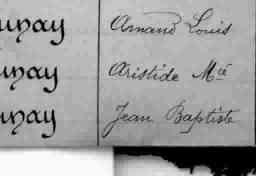 unay Amand Louis
unay Aristide Mcé
unay Jean Baptiste